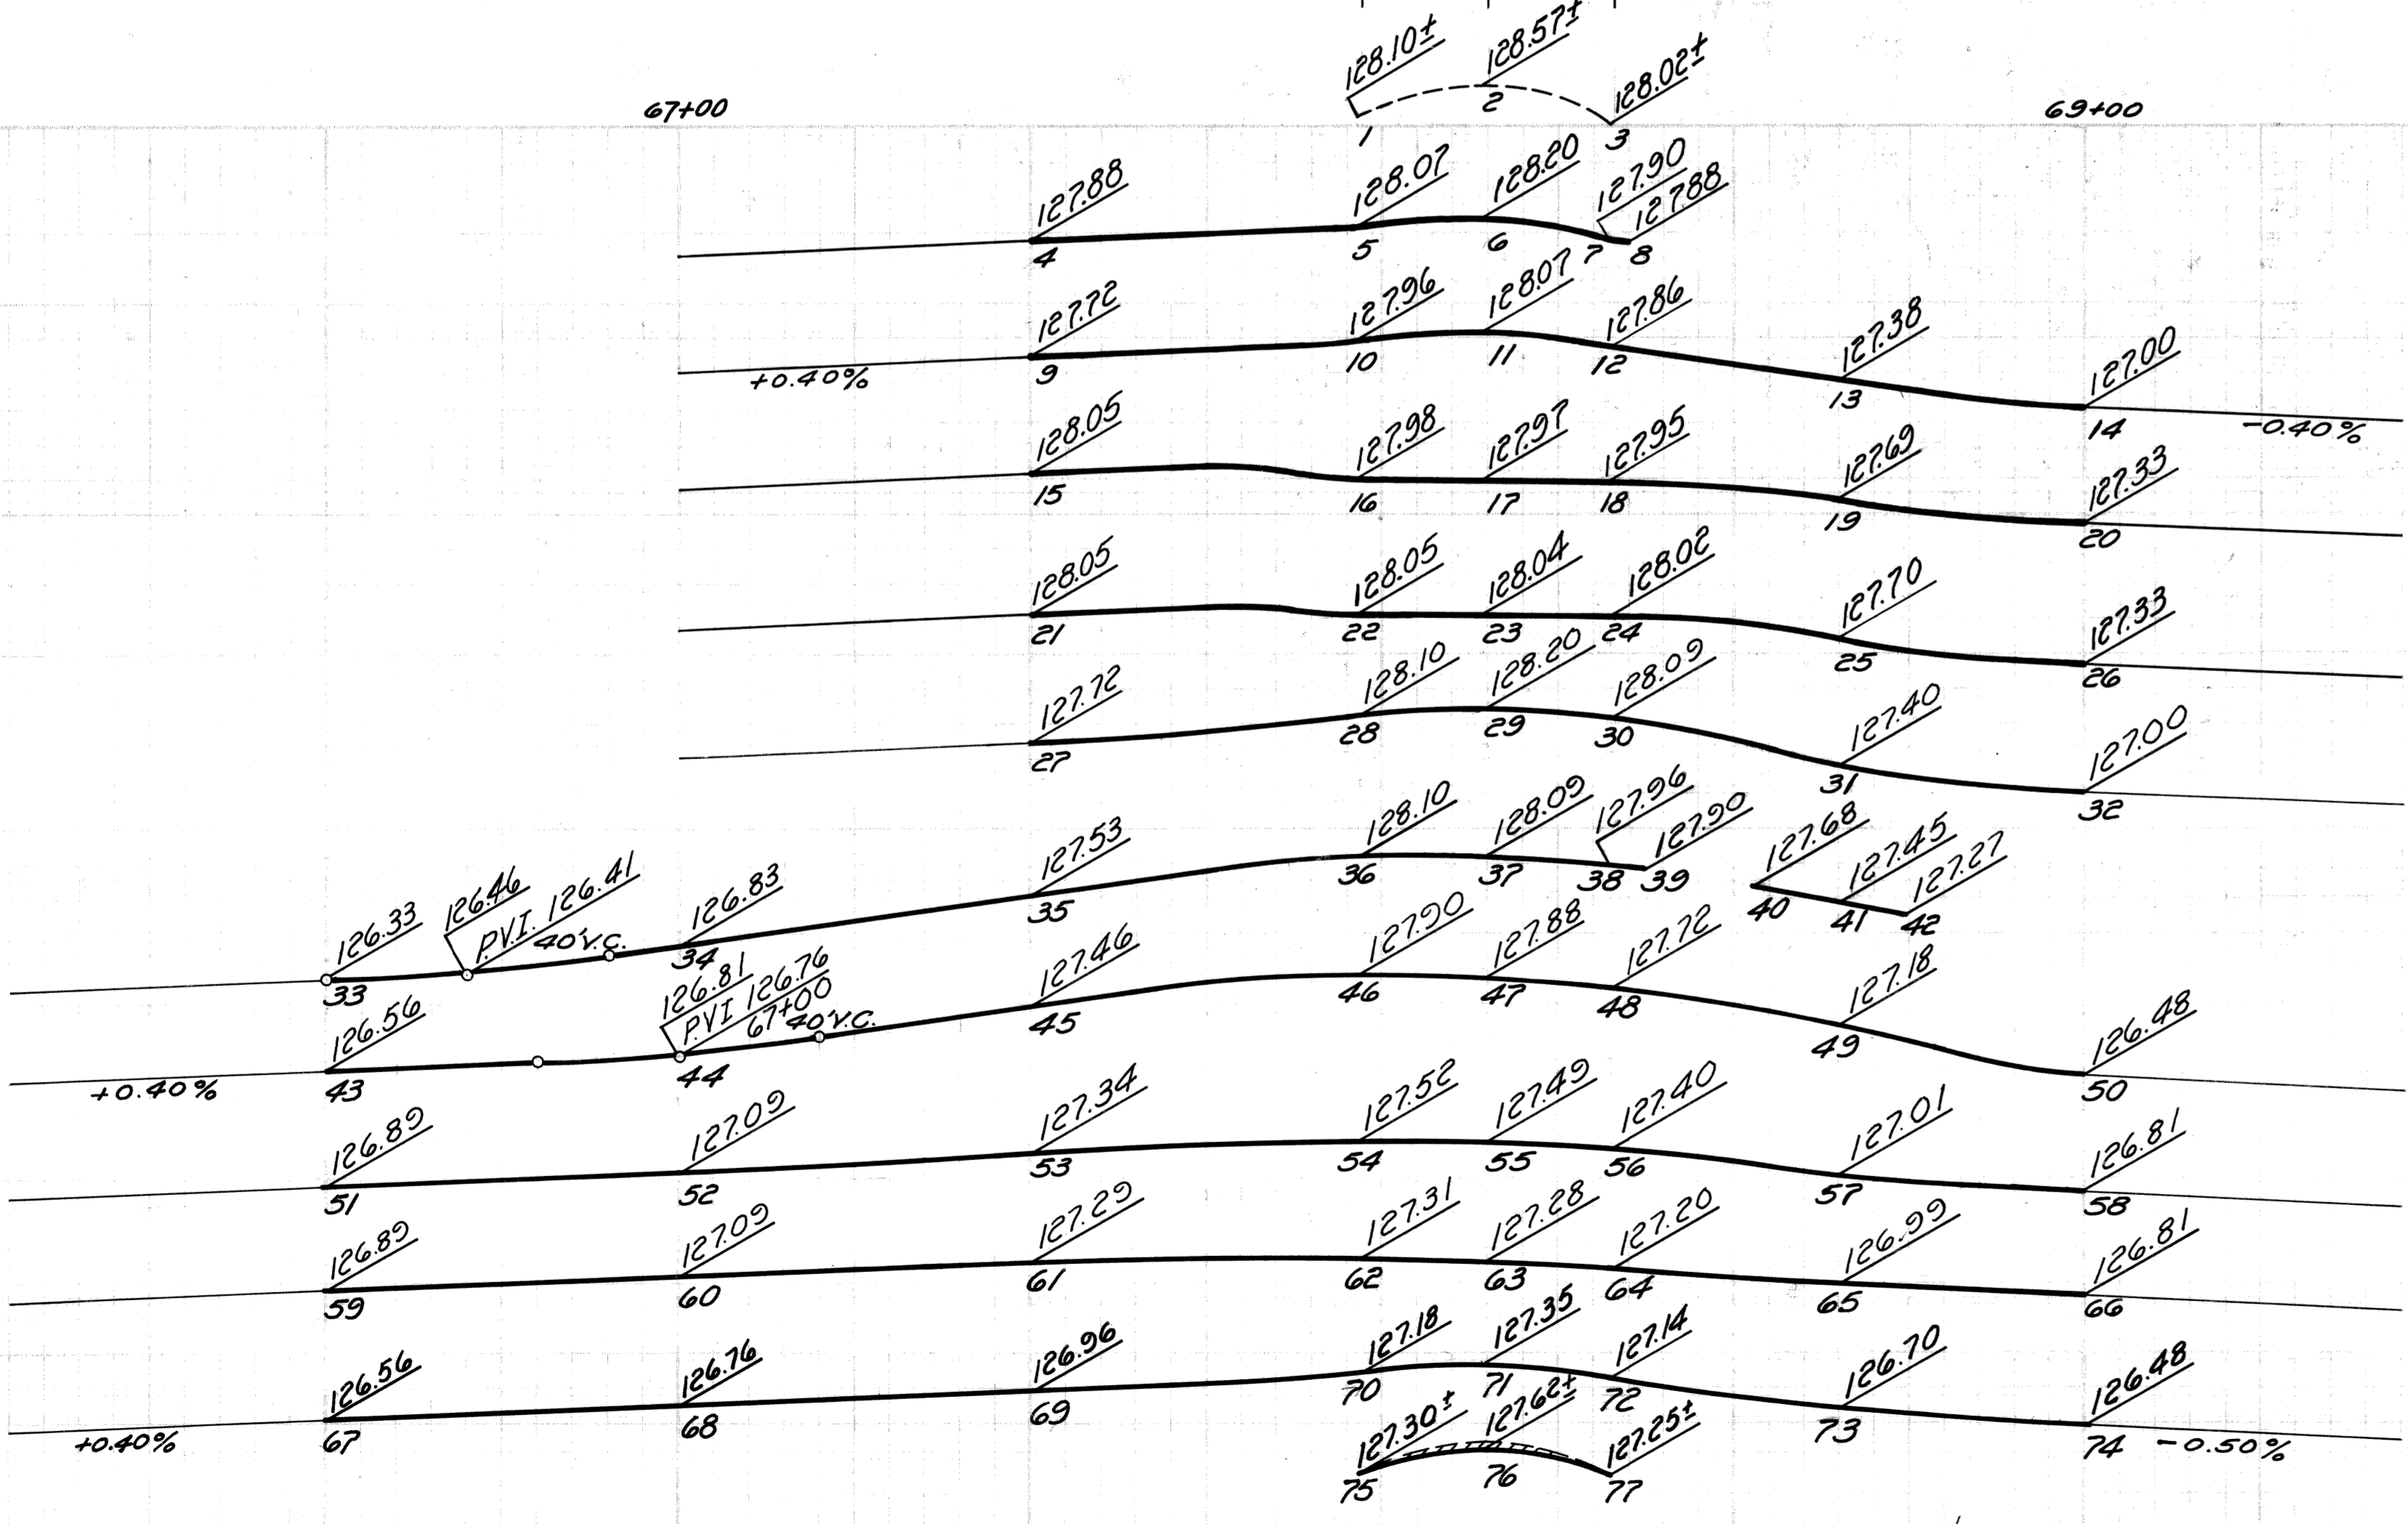 128.10± 128.57± 128.02±
1 2 3
67+00 69+00
127.88 128.07 128.20 127.90 127.88
4 5 6 7 8
127.72 127.96 128.07 127.86 127.38 127.00
+0.40% 9 10 11 12 13 14 -0.40%
128.05 127.98 127.97 127.95 127.69 127.33
15 16 17 18 19 20
128.05 128.05 128.04 128.02 127.70 127.33
21 22 23 24 25 26
127.72 128.10 128.20 128.09 127.40 127.00
27 28 29 30 31 32
126.33 126.46 P.V.I. 126.41 40'V.C. 126.83 127.53 128.10 128.09 127.96 127.90 127.68 127.45 127.27
33 34 35 36 37 38 39 40 41 42
126.56 126.81 PVI 126.76 67+00 40'V.C. 127.46 127.90 127.88 127.72 127.18 126.48
+0.40% 43 44 45 46 47 48 49 50
126.89 127.09 127.34 127.52 127.49 127.40 127.01 126.81
51 52 53 54 55 56 57 58
126.89 127.09 127.29 127.31 127.28 127.20 126.99 126.81
59 60 61 62 63 64 65 66
126.56 126.76 126.96 127.18 127.35 127.14 126.70 126.48
+0.40% 67 68 69 70 71 72 73 74 -0.50%
127.30± 127.62± 127.25±
75 76 77